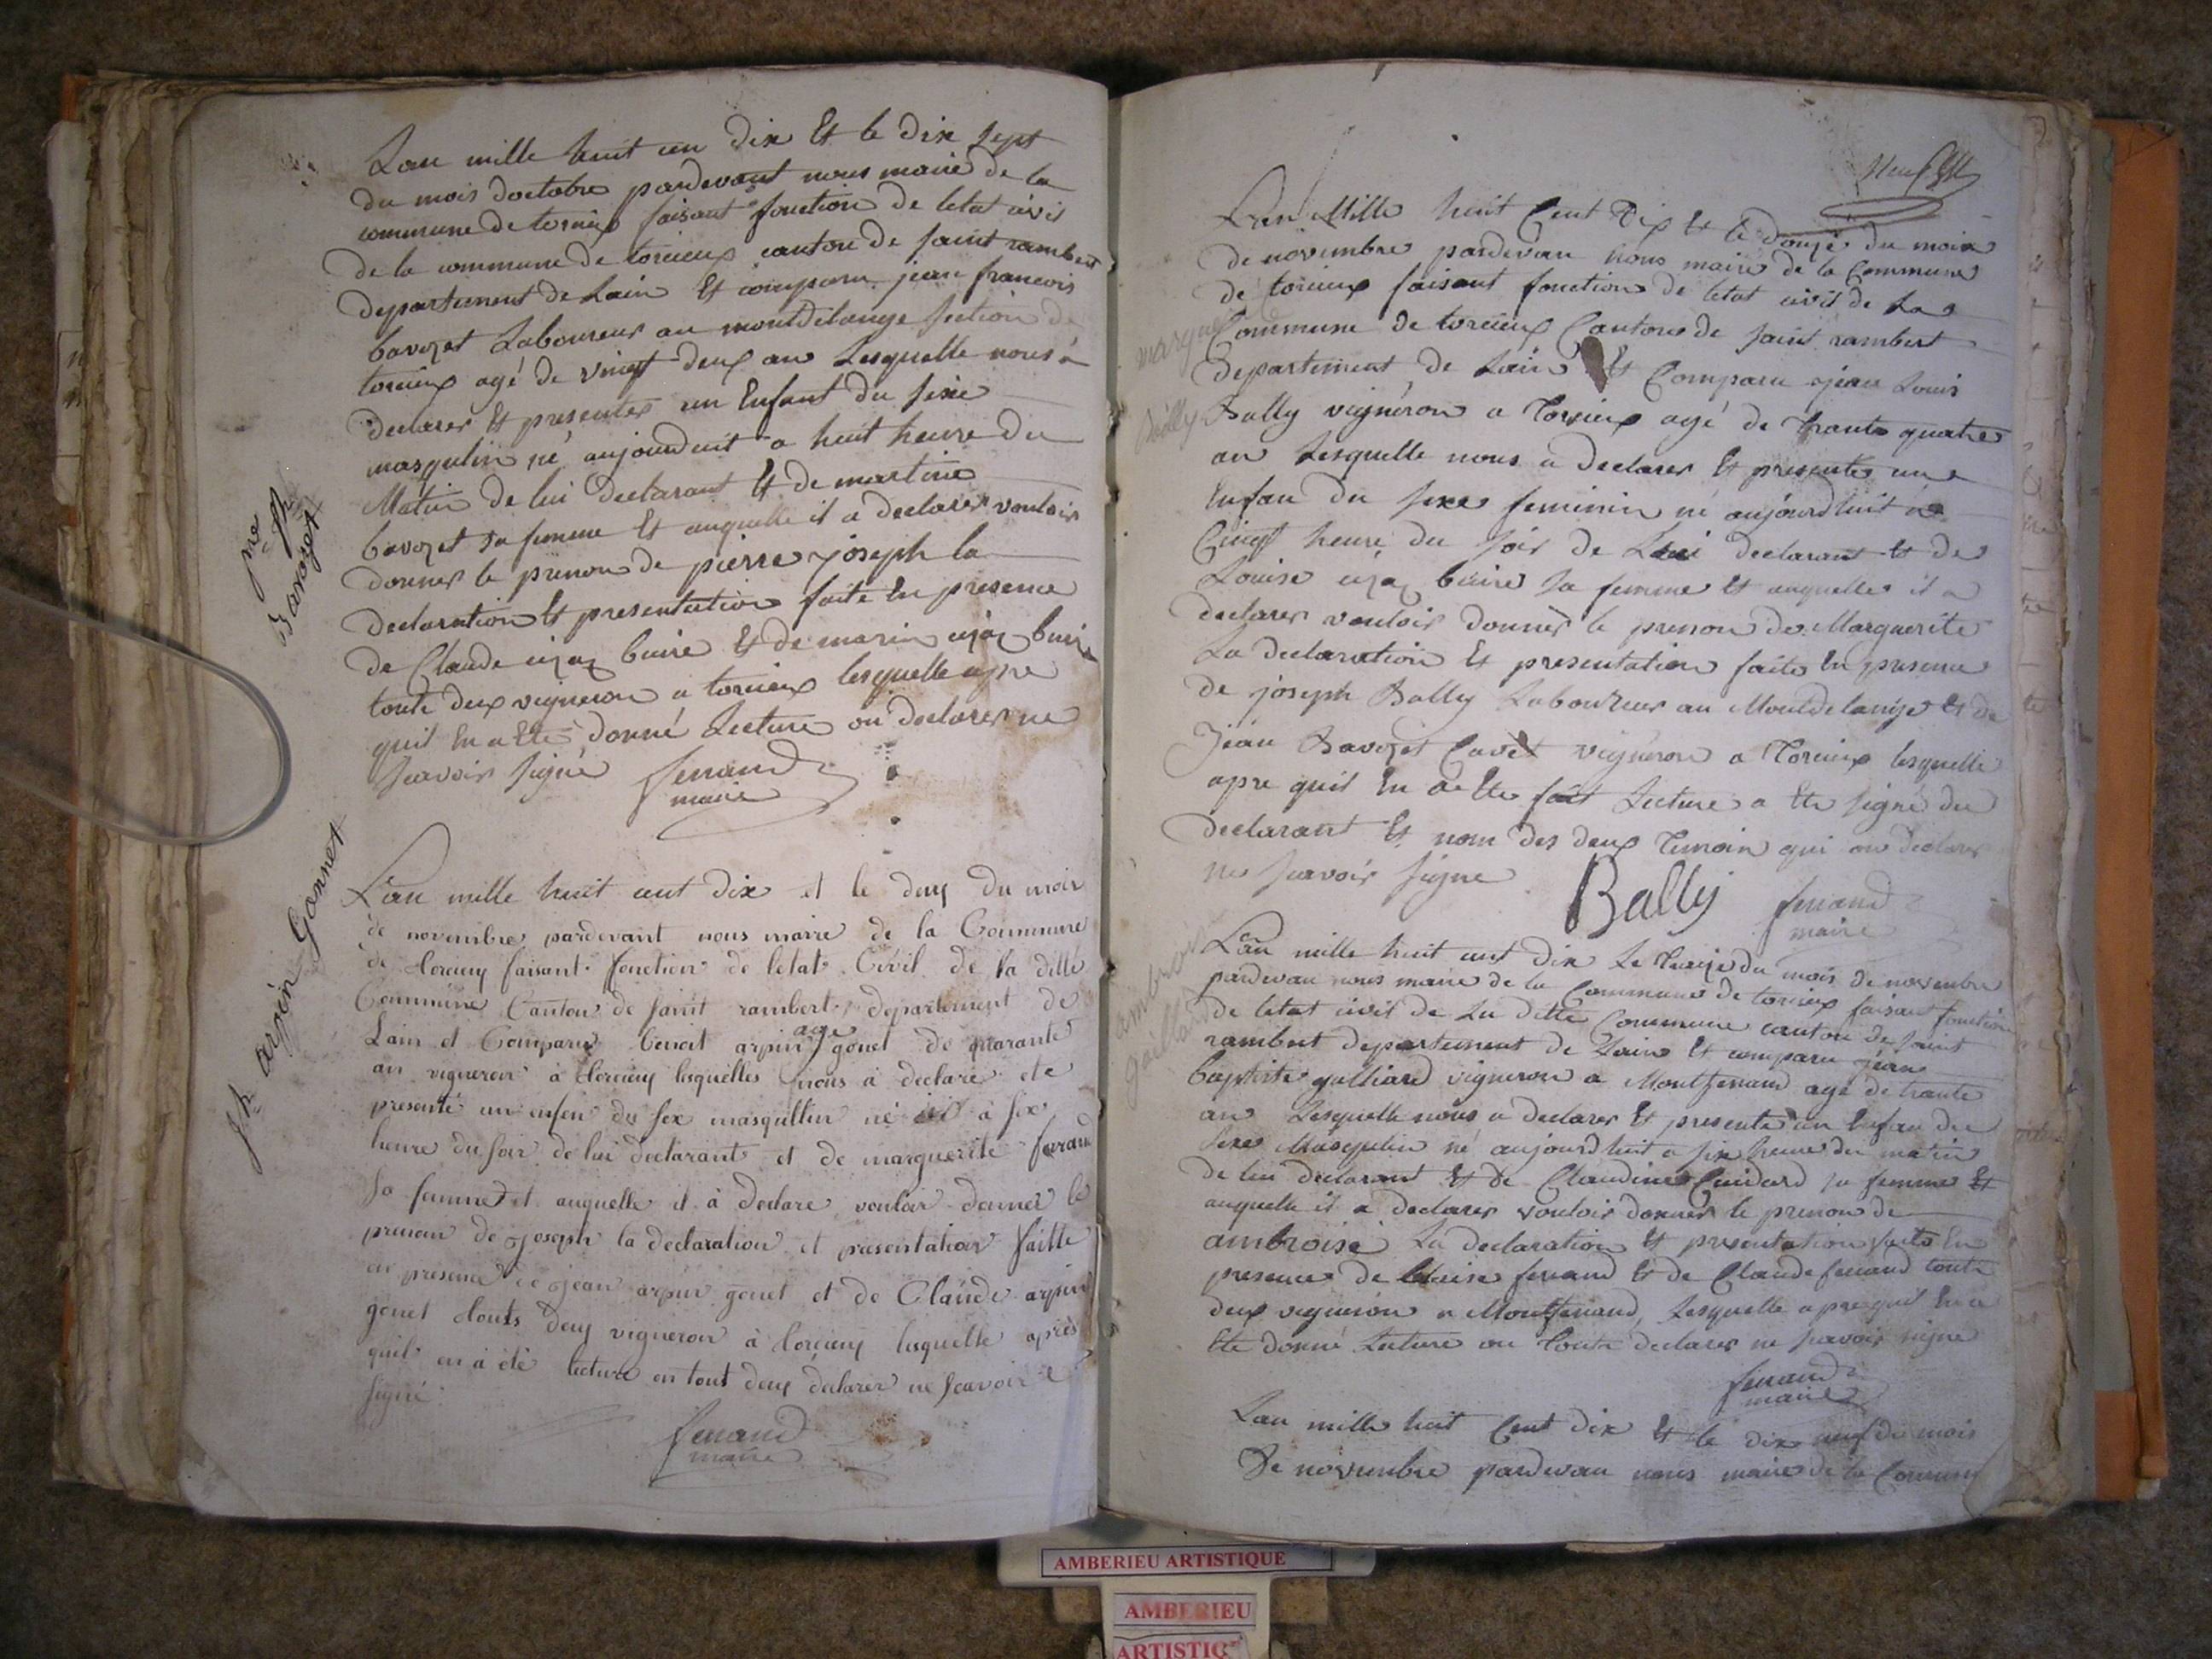 Lan mille huit cen dix Et le dix sept
du mois doctobre pardevant nous maire de la
commune de torcieux faisant fonction de letat civil
de la commune de torcieux canton de saint rambert
departement de Lain Et comparu jean francois
bavozet Laboureur au montdelange section de
torcieux agé de vingt deux an Lesquelle nous a
declarer Et presenter un Enfant du sexe
masqulin né aujourduit a huit heure du
Matin de lui declarant Et de martine
bavozet sa femme Et auquelle il a declarer vouloir
donner le prenon de pierre joseph la
declaration Et presentation faite En presence
de Claude buire Et de marin buire
toute deux vigneron a torcieux lesquelle apre
quil En a Ete donné Lecture on declarer ne
scavoir signe
ferrand
maire
pre jh
Bavozet
Lan mille huit cent dix et le deux du mois
de novembre pardevant nous maire de la Commune
de torcieux faisant fonction de letat Civil de la ditte
Commune Canton de saint rambert departement de
Lain et Comparu benoit arpin gonet age de quarante
an vigneron à torcieux lesquelles nous à declaré ete
presenté un enfen du sex masqullin né à six
heure du soir de lui declarant et de marguerite ferand
sa femme et auquelle il à declare vouloir donner le
prenon de joseph la declaration et presentation faitte
en presence de jean arpin gonet et de Claude arpin
gonet touts deux vigneron à torcieux lesquelle après
quil en à été lecture on tout deux declarer ne scavoir
signé
ferrand
maire
jh arpin Gonnet
Lan Mille huit Cent Dix Et le douze du mois
de novembre pardevan nous maire de la Commune
de torcieux faisant fonction de letat civil de La
Commune de torcieux Canton de saint rambert
departement de Lain Et Comparu jean Louis
Bally vigneron a Torcieux agé de trante quatre
an Lesquelle nous a declarer Et presenter un
Enfan du sexe feminin né aujourdhuit a
Cinq heure du soir de Lui declarant Et de
Louise buire sa femme Et auquelle il a
declarer vouloir donner le prenon de Marguerite
La declaration Et presentation faite En presence
de joseph Bally Laboureur au Montdelange Et de
Jean Bavozet Cavet vigneron a Torcieux lesquelle
apre quil En a Ete fait Lecture a Ete signé du
declarant Et non des deux Temoin qui on declarer
ne scavoir signe
Bally
ferrand
maire
marguerite
Bally
Lan mille huit cent dix Le treize du mois de novembre
pardevan nous maire de la Commune de torcieux faisan fonction
de letat civil de La ditte Commune canton de saint
rambert departement de Lain Et comparu jean
baptiste galliard vigneron a Montferrand agé de trante
an Lesquelle nous a declarer Et presenter un Enfan du
sexe Masqulin né aujourdhuit a six heure du matin
de lui declarant Et de Claudine Cuidard sa femme Et
auquelle il a declarer vouloir donner le prenon de
ambroise La declaration Et presentation faite En
presence de blaise ferrand Et de Claude ferrand toute
deux vigneron a Montferrand, Lesquelle apre quil En a
Ete donné Lecture on toute declarer ne scavoir signe
ferrand
maire
ambroise
gailliard
Lan mille huit Cent dix Et le dix neuf du mois
De novembre pardevan nous maire de la Commune
AMBERIEU ARTISTIQUE
AMBERIEU
ARTISTIQ